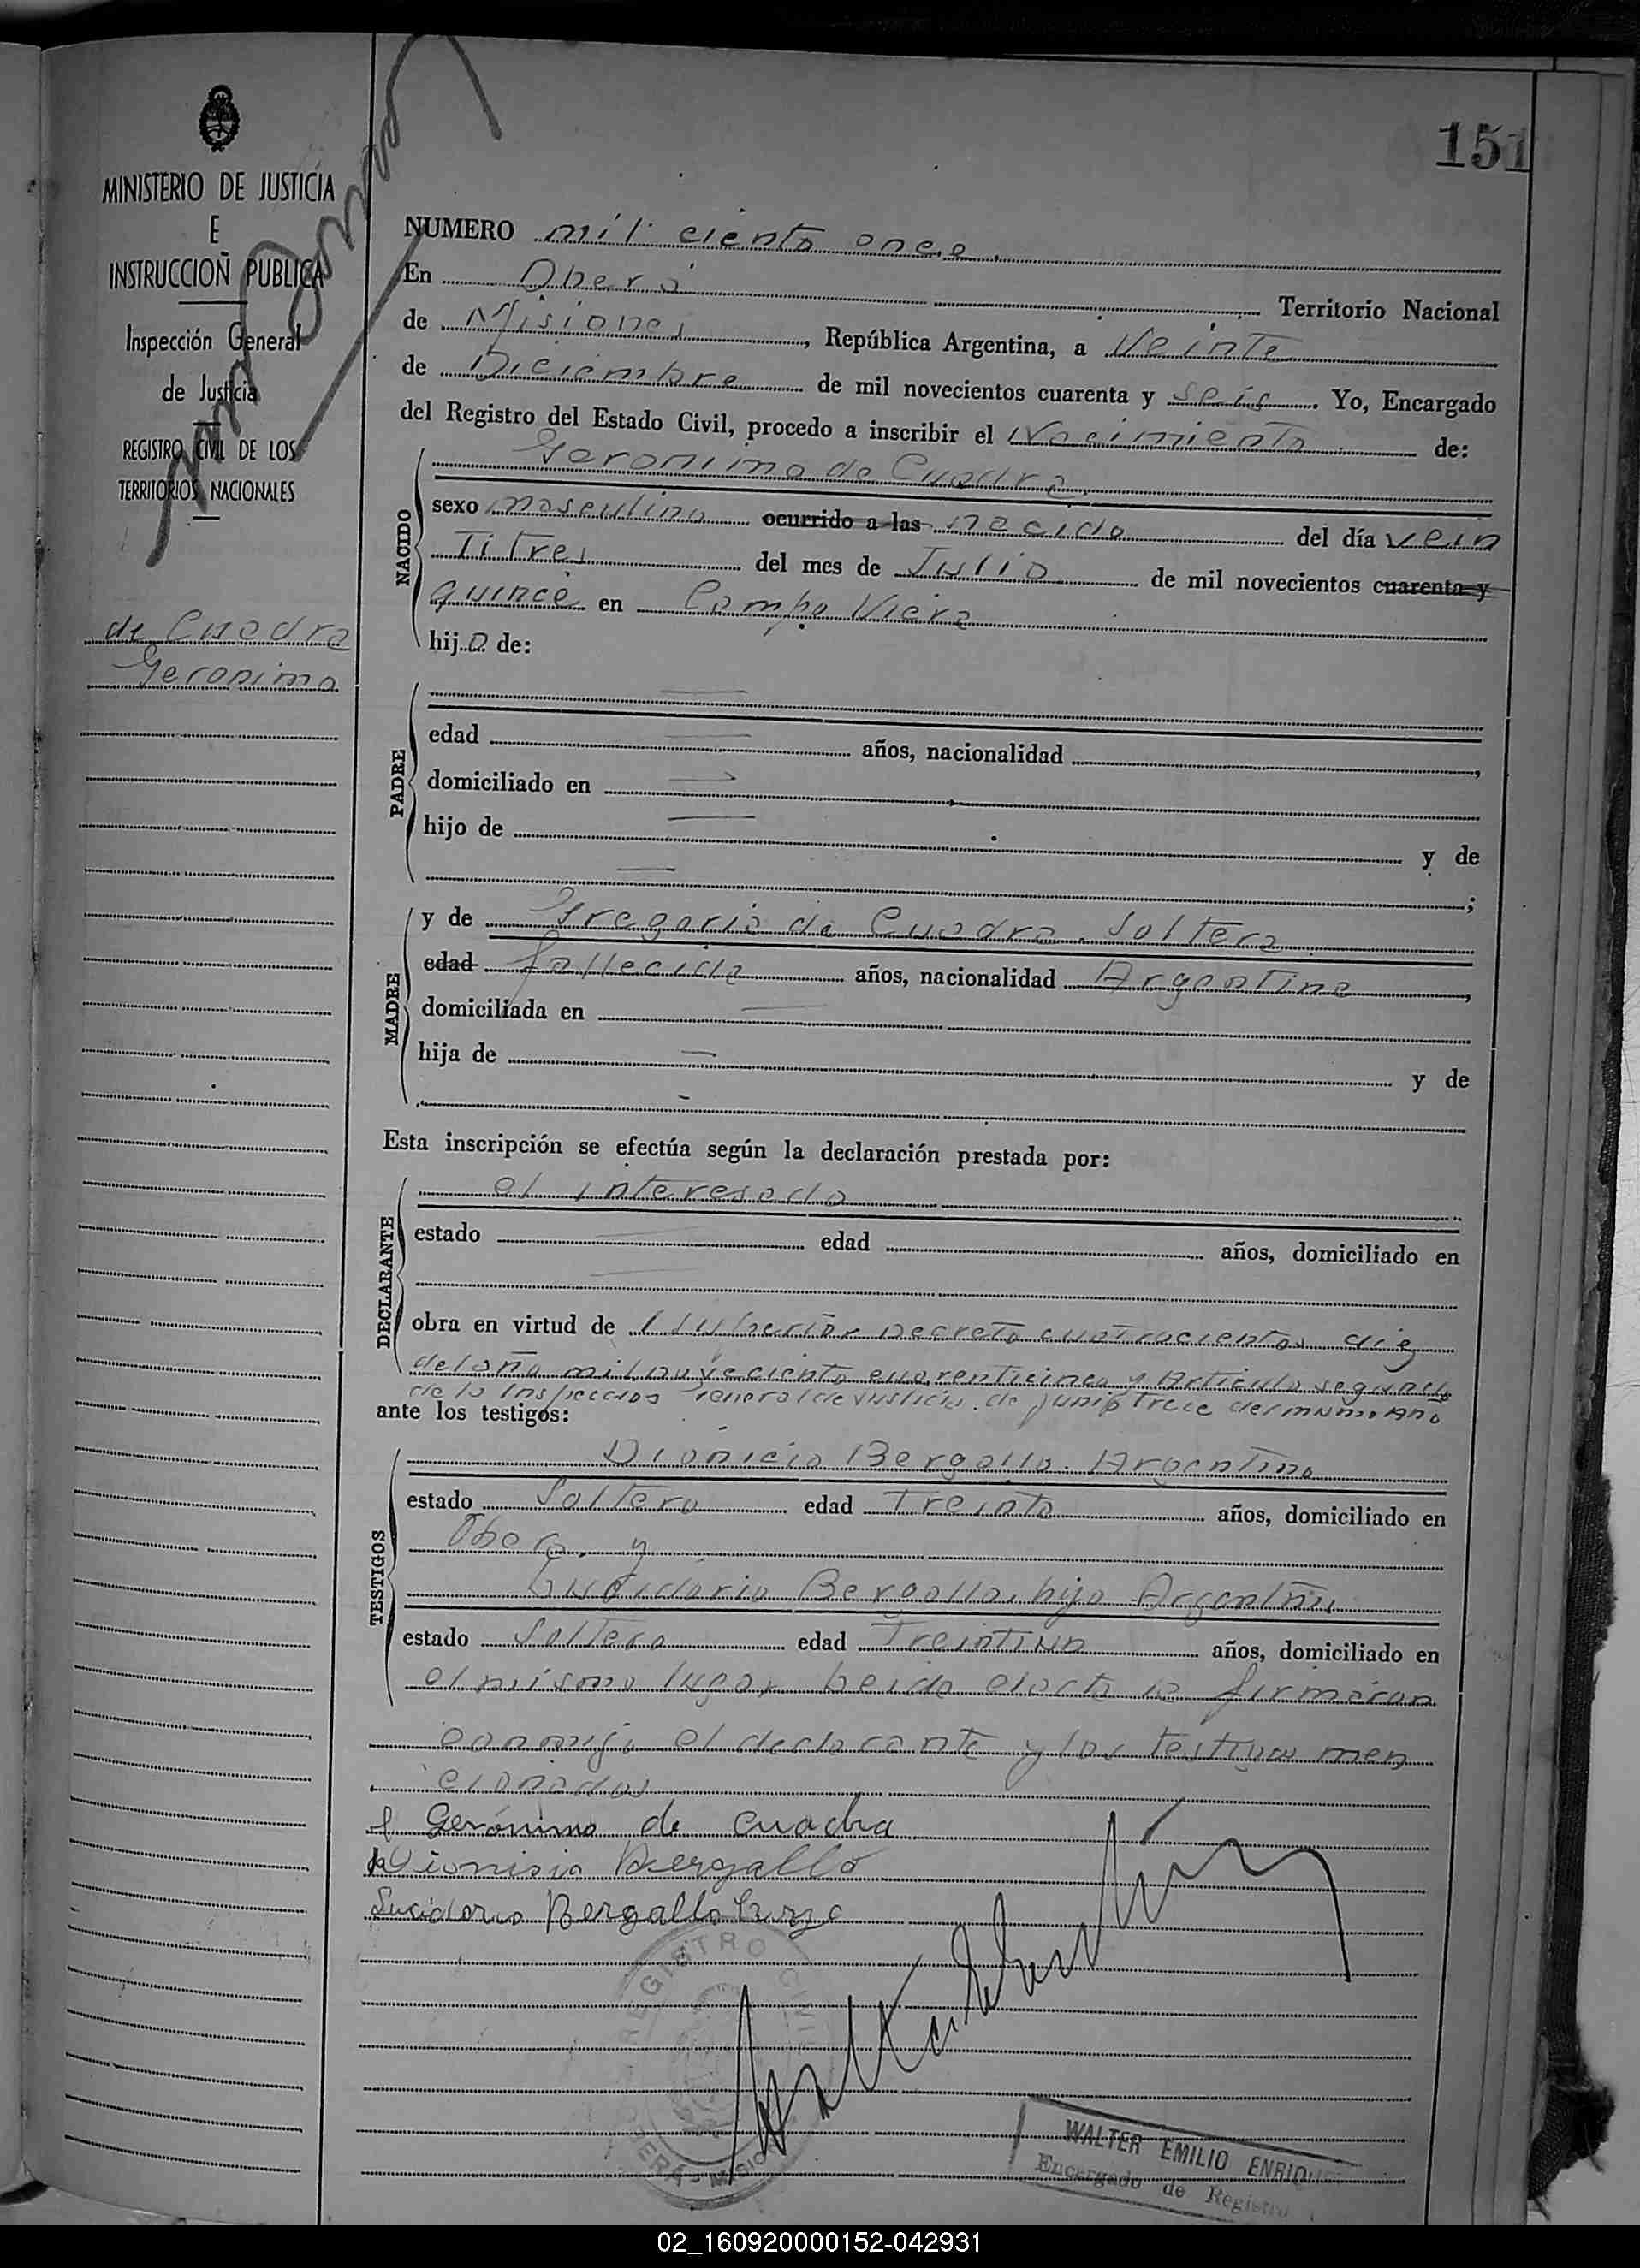 151
MINISTERIO DE JUSTICIA
E
INSTRUCCION PUBLICA
Inspección General
de Justicia
REGISTRO CIVIL DE LOS
TERRITORIOS NACIONALES
de Cuadra
Geronimo
NUMERO mil ciento once.
En Oberá Territorio Nacional
de Misiones, República Argentina, a Veinte
de Diciembre de mil novecientos cuarenta y seis. Yo, Encargado
del Registro del Estado Civil, procedo a inscribir el Nacimiento de:
Geronimo de Cuadra.
NACIDO
sexo masculino ocurrido a las nacido del día vein
titres del mes de Julio de mil novecientos cuarenta y
quince en Campo Viera
hijo de:
PADRE
edad años, nacionalidad ,
domiciliado en
hijo de y de
;
MADRE
y de Gregoria de Cuadra. Soltera
edad fallecida años, nacionalidad Argentina,
domiciliada en
hija de y de
Esta inscripción se efectúa según la declaración prestada por:
DECLARANTE
el interesado
estado edad años, domiciliado en
obra en virtud de Superior Decreto cuatrocientos diez
del año mil noveciento cuarenticinco y Articulo segundo
de la Inspeccion General de Justicia. de junio trece del mismo Año
ante los testigos:
TESTIGOS
Dionicio Bergallo. Argentino
estado Soltero edad Treinta años, domiciliado en
Obera. y
Lucidorio Bergallo, hijo Argentino
estado Soltero edad Treintiun años, domiciliado en
el mismo lugar heida el acta la firmaron
conmigo el declarante y los testigos men
cionados
Gerónimo de Cuadra
Dionisio Bergallo
Lucidorio Bergallo
REGISTRO CIVIL
OBERÁ - MISIONES
WALTER EMILIO ENRIQUE
Encargado de Registro
02_160920000152-042931